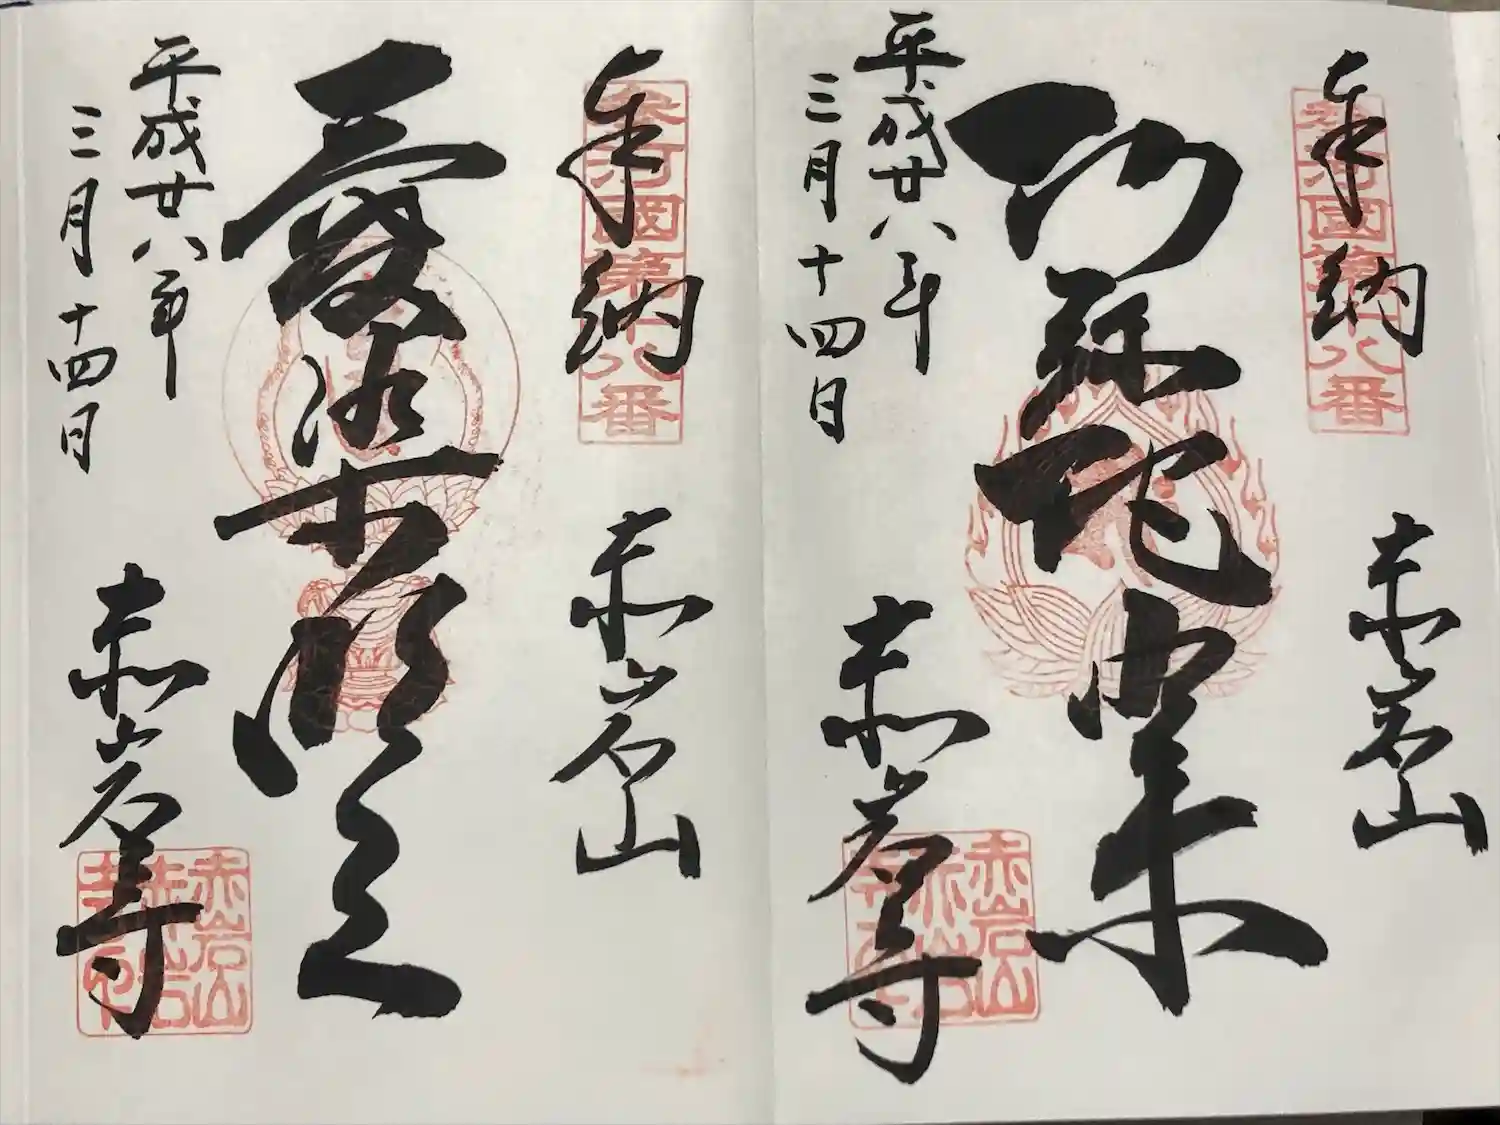 奉納
参河國第十八番
赤岩山
阿弥陀如来
平成廿八年
三月十四日
赤岩寺
赤岩山
赤岩
寺印
奉納
参河國第十八番
赤岩山
愛染明王
平成廿八年
三月十四日
赤岩寺
赤岩山
赤岩
寺印